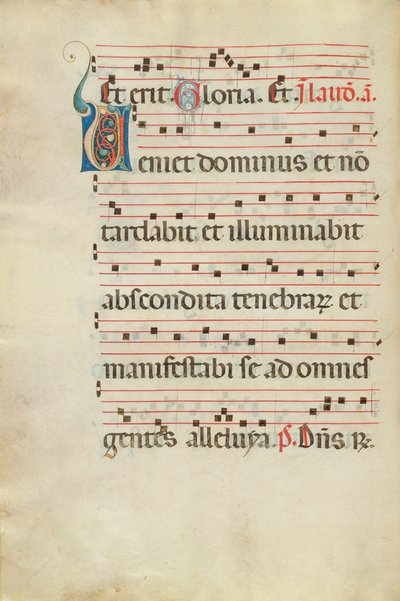 Et erit. Gloria. Et. Ī lauđ. ā.
Ueniet dominus et nō
tardabit et illuminabit
abscondita tenebraꝝ et
manifestabi se ad omnes
gentes alleluya. P. Dn̄s. ꝶ.